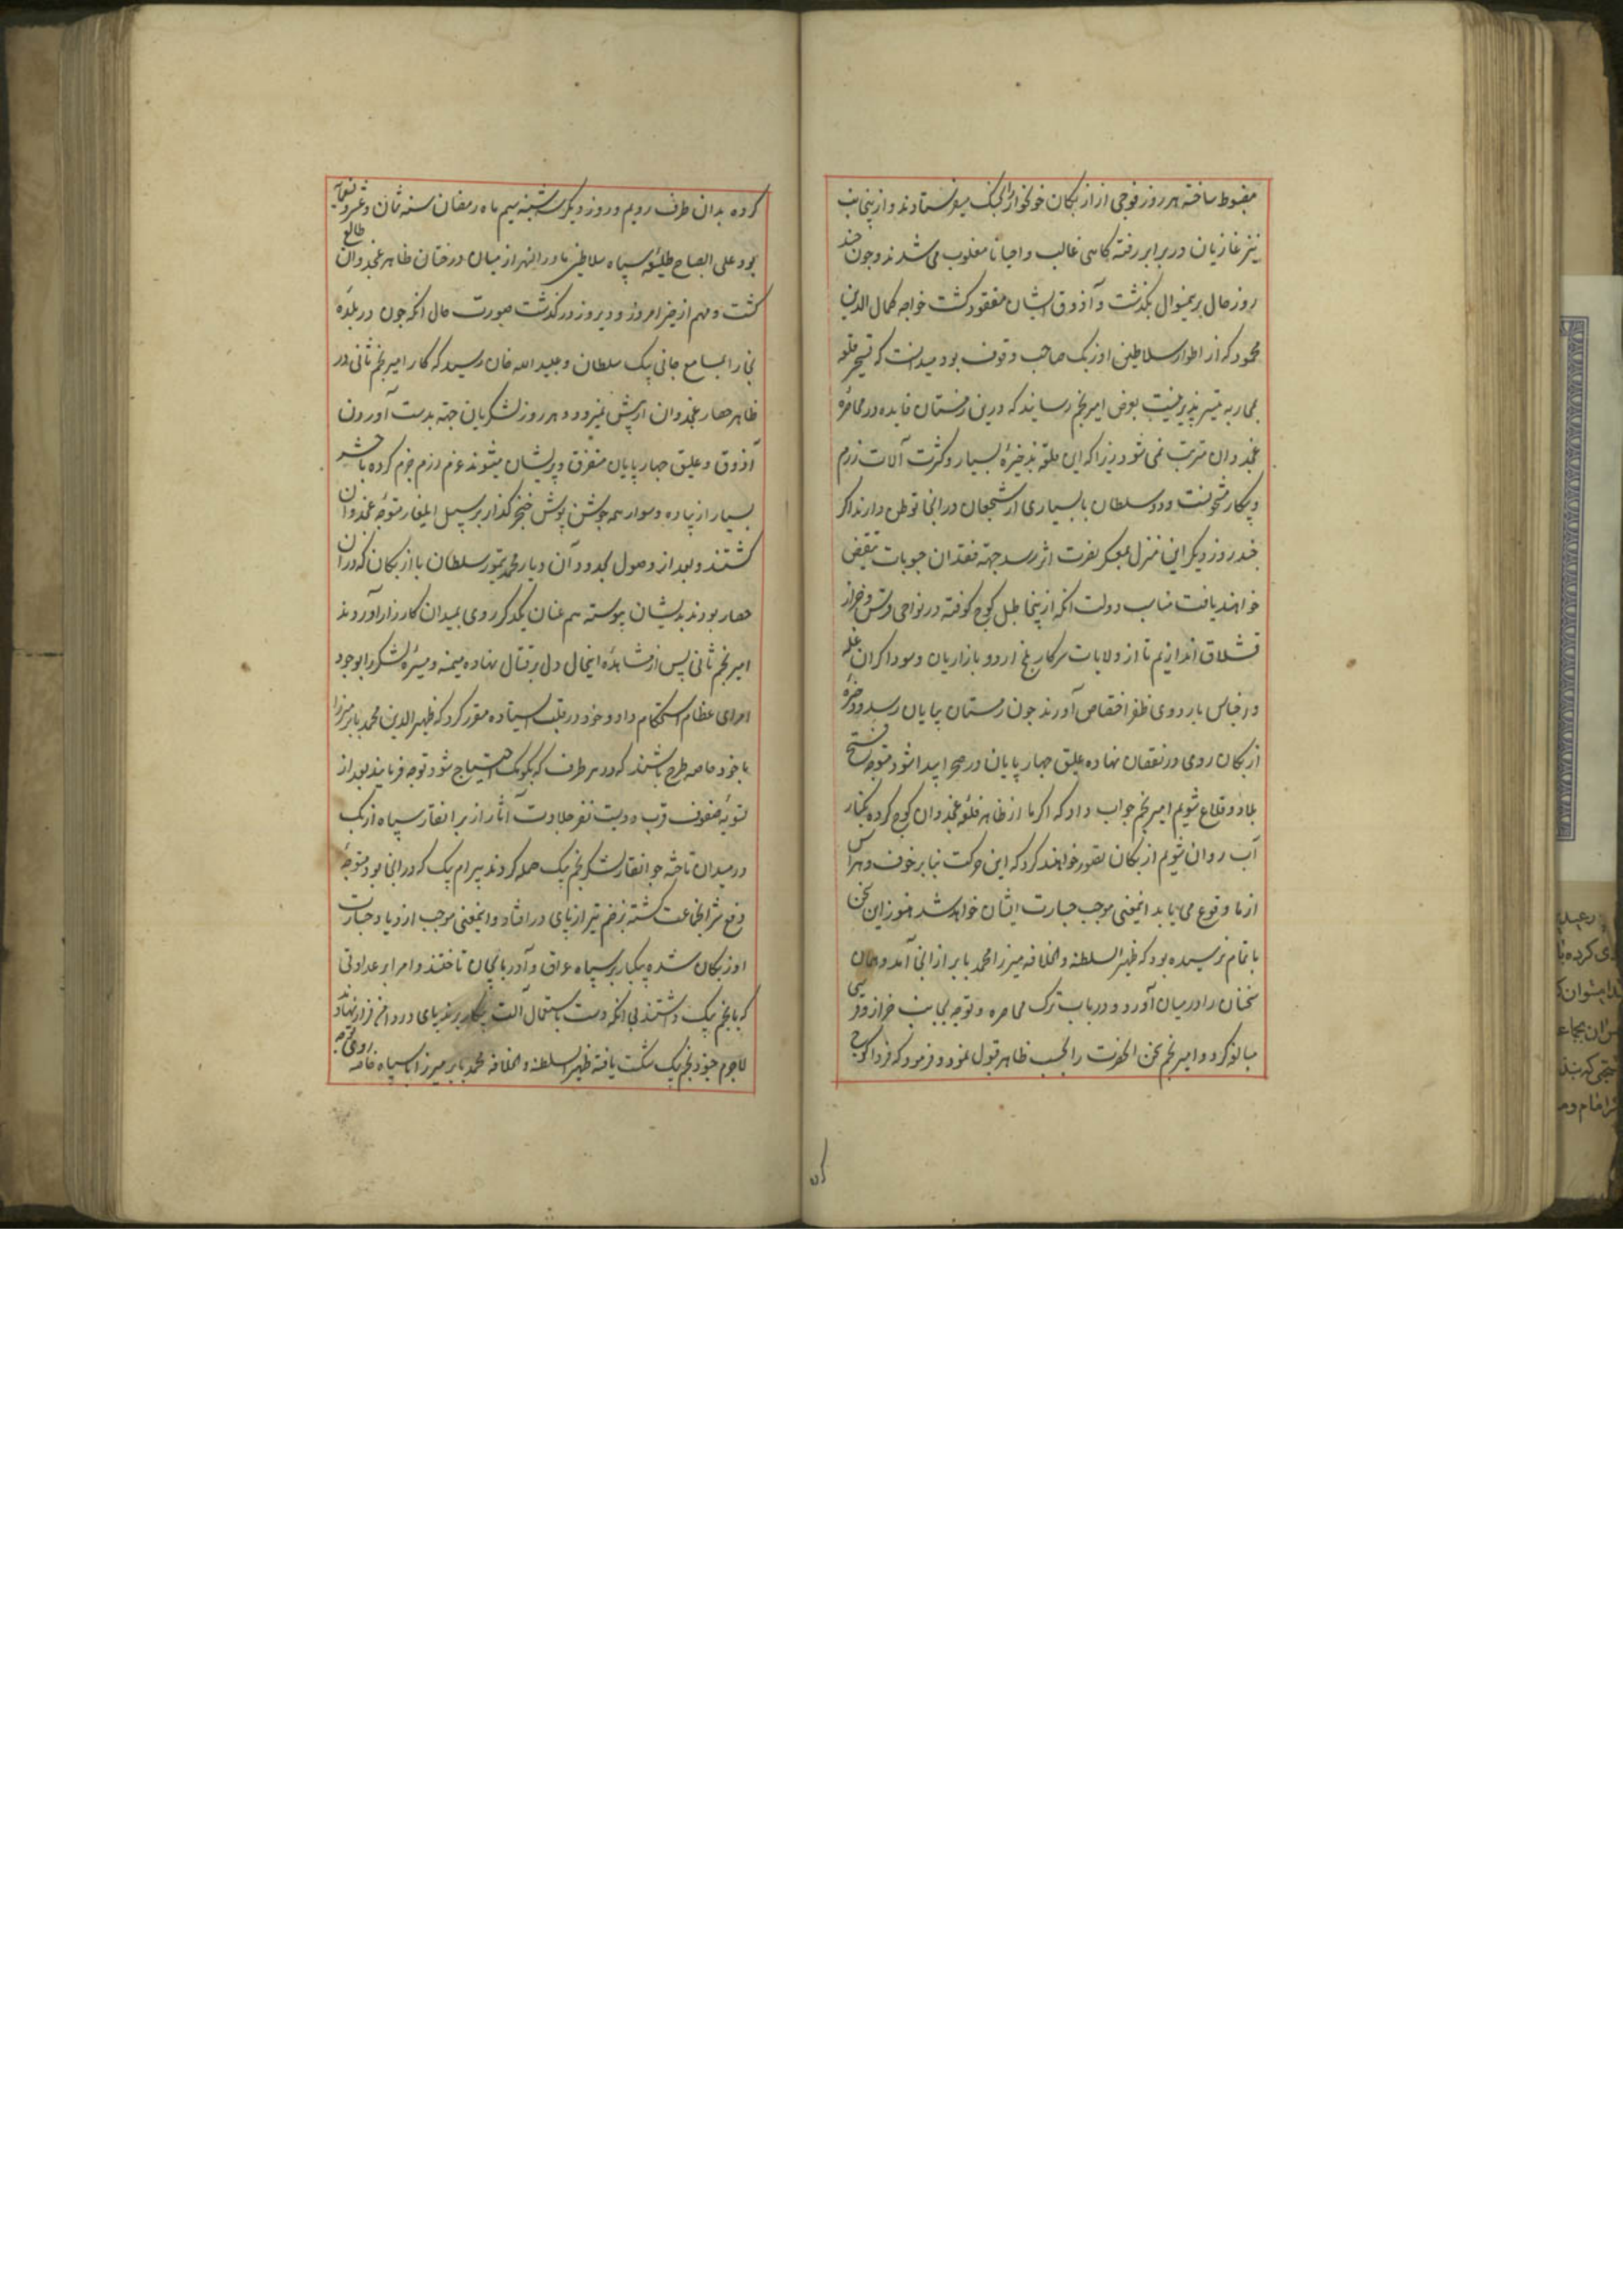 مضبوط ساخته هر روز فوجی از ازبکان خونخوار بجنک میفرستادند و ازینجانب
نیز غازیان در برابر رفته کاهی غالب و احیانا مغلوب می شدند و چون چند
روز حال برینمنوال بکذشت و آذوق ایشان مفقود کشت خواجه کمال الدین
محمود که از اطوار سلاطین اوزبک صاحب وقوف بود میدانست که تسخیر قلعه
بمحاربه میسر پذیر نیست بعرض امیر نجم رسانید که درین زمستان فایده در محاصره
غجدوان مترتب نمی شود زیرا که این قلعه بذخیره بسیار و کثرت آلات رزم
و پیکار مشحونست و دو سلطان با بسیاری از شجعان در انجا توطن دارند اکر
چند روز دیکر این منزل معسکر نصرت اثر باشد جهة فقدان حبوبات تنقیص
خواهند یافت مناسب دولت انکه ازینجا طبل کوچ کوفته در نواحی قرشی و خزار
قشلاق اندازیم تا از ولایات سرکار بلخ اردو بازاریان و سوداکران غله
و اجناس باردوی ظفر اختصاص آورند چون زمستان بپایان رسد و ذخیره
ازبکان روی در نقصان نهاده علیق چهارپایان در صحرا پیدا شود متوجه فتح
بلاد و قلاع شویم امیر نجم جواب داد که اکر ما از ظاهر قلعه غجدوان کوچ کرده بکنار
آب روان شویم ازبکان تصور خواهند کرد که این حرکت بنا بر خوف و هراس
از ما وقوع می یابد اینمعنی موجب جسارت ایشان خواهد شد هنوز این سخن
باتمام نرسیده بود که ظهیر السلطنه والخلافه میرزا محمد بابر از انجا آمد و همان
سخنان را در میان آورد و در باب ترک محاصره و توجه بجانب خزار و قرشی
مبالغه کرد و امیر نجم سخن انحضرت را بحسب ظاهر قبول نمود و فرمود که فردا کوچ
کرده بدان طرف رویم و روز دیکر سه شنبه سیم ماه رمضان سنه ثمان و عشر و تسعمایه
بود علی الصباح طلیعه سپاه سلاطین ماوراءالنهر از میان درختان ظاهر غجدوان طالع
کشت و مهم از خیر امروز و دیروز در کذشت صورت حال انکه چون در بلده
بخارا بمسامع جانی بیک سلطان و عبید الله خان رسید که کار امیر نجم ثانی در
ظاهر حصار غجدوان از پیش نمیرود و هر روز لشکریان جهة بدست آوردن
آذوق و علیق چهارپایان متفرق و پریشان میشوند عزم رزم جزم کرده با حشر
بسیار از پیاده و سوار همه جوشن پوش خنجر کذار بر سبیل ایلغار متوجه غجدوان
کشتند و بعد از وصول بحدود آن دیار محمد تیمور سلطان با ازبکان که در ان
حصار بودند بدیشان پیوسته هم عنان یکدیکر روی بمیدان کارزار آوردند
امیر نجم ثانی پس از مشاهده اینحال دل بر قتال نهاده میمنه و میسره لشکر را بوجود
امرای عظام استحکام داد و خود در قلب ایستاده مقرر کرد که ظهیر الدین محمد بابر میرزا
با جنود خاصه طرح باشند که در هر طرف که بکومک احتیاج شود توجه فرمایند بعد از
تسویه صفوف قرب دویست نفر جلادت آثار از برانغار سپاه ازبک
در میدان تاخته جوانغار لشکر نجم بیک حمله کردند بیرام بیک که در انجا بود متوجه
دفع شر انجماعت کشته بزخم تیر از پای در افتاد و اینمعنی موجب ازدیاد جسارت
اوزبکان شده بیکبار بر سپاه عراق و آذربایجان تاختند و امرا بر عداوتی
که با نجم بیک داشتند بی انکه دست باستعمال آلت پیکار برند پای در وادی فرار نهادند
لاجرم جنود نجم بیک شکست یافته ظهیر السلطنه والخلافه محمد بابر میرزا با سپاه خاصه روی توجه